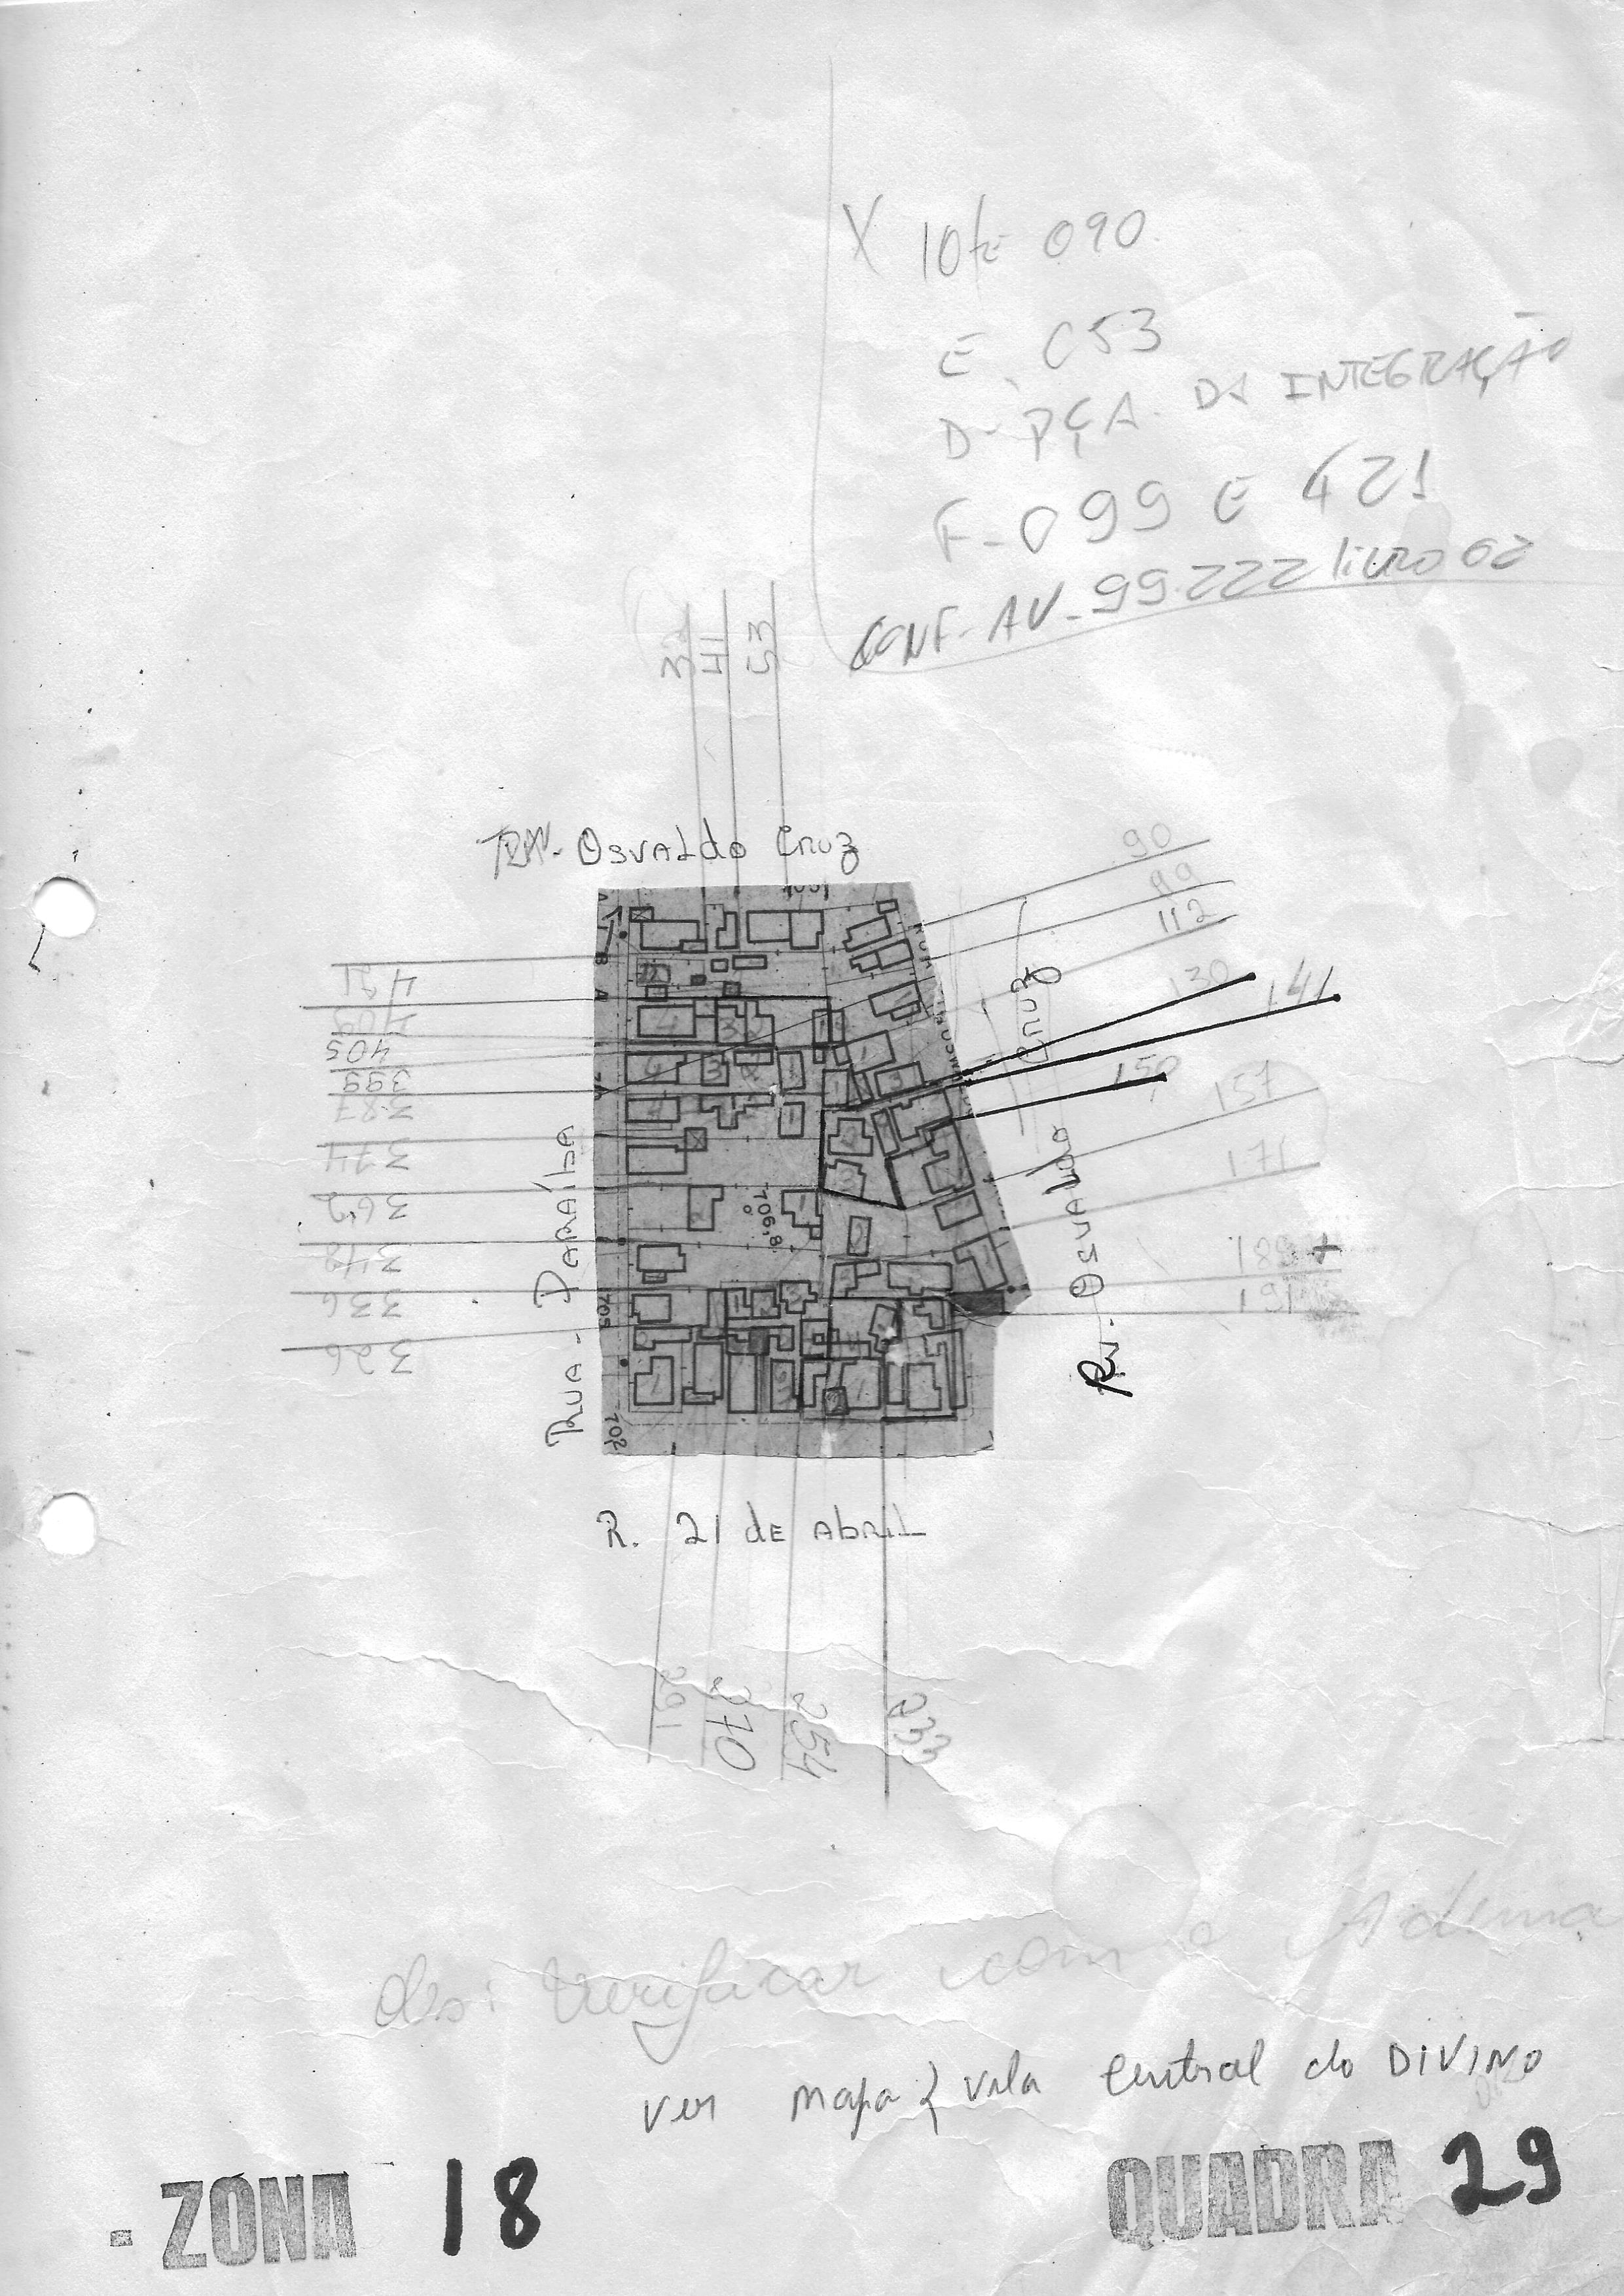 X lote 090
E 053
D- PÇA. DA INTEGRAÇÃO
F-099 E 421
CONF- AV- 99.222 livro 02
41
53
TRAV- Osvaldo Cruz
90
99
112
130
141
150
157
171
191
421
405
399
387
374
362
348
336
326
Rua - Paraíba
R. Osvaldo Cruz
706,8
R. 21 de Abril
291
270
254
233
Obs: Verificar com o
Ver mapa vila Central do DIVINO
ZONA 18
QUADRA 29